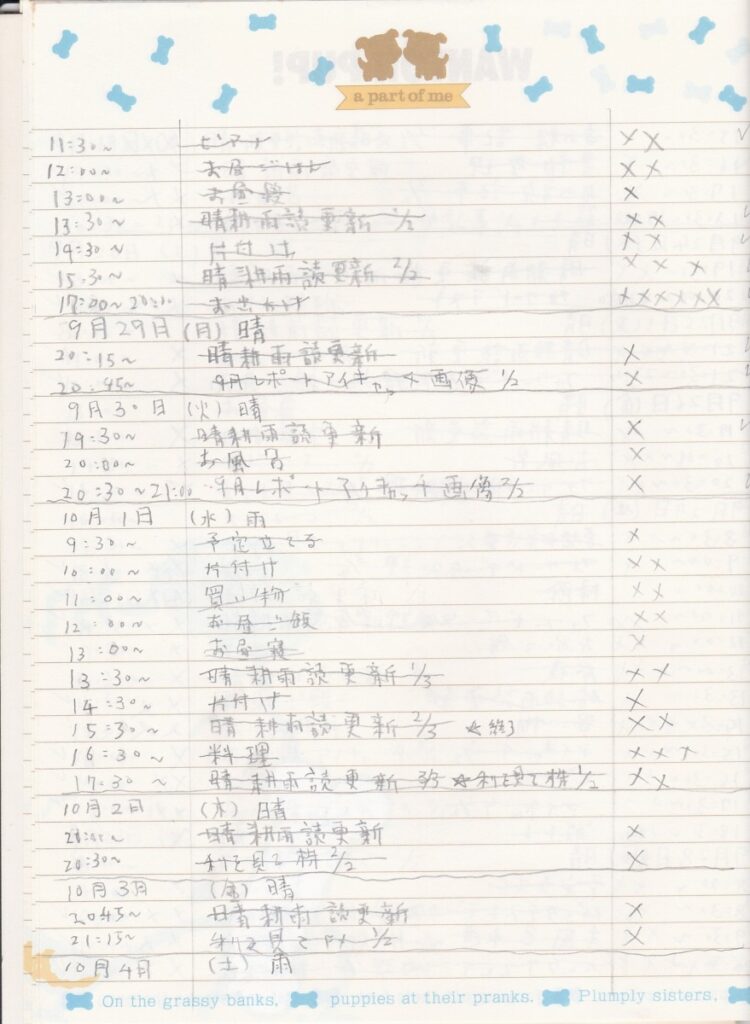 a part of me
11:30~ ピアノ ××
12:00~ お昼ごはん ××
13:00~ お昼寝 ×
13:30~ 晴耕雨読更新 1/2 ××
14:30~ 片付け ××
15:30~ 晴耕雨読更新 2/2 ×××
17:00~20:00 お出かけ ××××××
9月29日(月)晴
20:15~ 晴耕雨読更新 ×
20:45~ 9月レポートアイキャッチ画像 1/2 ×
9月30日(火)晴
19:30~ 晴耕雨読更新 ×
20:00~ お風呂 ×
20:30~21:00 9月レポートアイキャッチ画像 2/2 ×
10月1日(水)雨
9:30~ 予定立てる ×
10:00~ 片付け ××
11:00~ 買い物 ××
12:00~ お昼ご飯 ××
13:00~ お昼寝 ×
13:30~ 晴耕雨読更新 1/3 ××
14:30~ 片付け ×
15:30~ 晴耕雨読更新 2/3 ☆終了 ××
16:30~ 料理 ×××
17:30~ 晴耕雨読更新 3/3 ☆利を見て株 1/2 ××
10月2日(木)晴
20:00~ 晴耕雨読更新 ×
20:30~ 利を見て株 2/2 ×
10月3日(金)晴
20:45~ 晴耕雨読更新 ×
21:15~ 1/2 ×
10月4日(土)雨
On the grassy banks, puppies at their pranks. Plumply sisters,